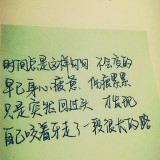 时间总是这样匆匆 不会变的
早已身心疲惫 伤痕累累
只是突然回过头 才发现
自己咬着牙走了一段很长的路